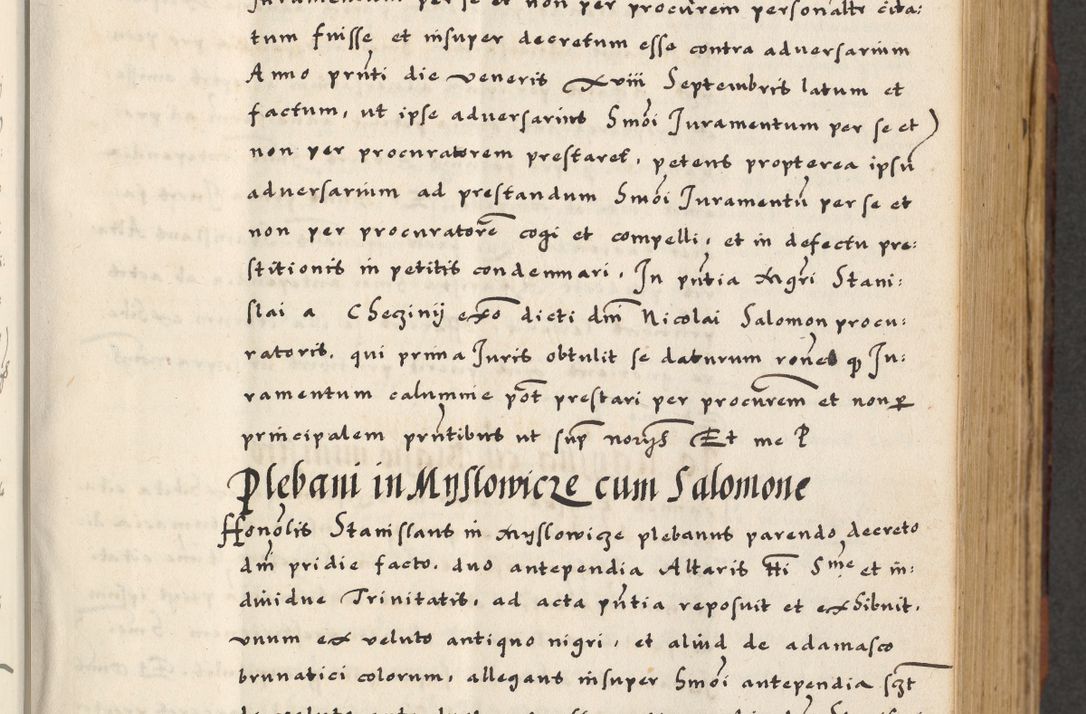 Juramentum per se et non per procurem personaltr cita:
tum fuisse et insuper decretum esse contra adversarium
Anno prnti die veneris xviii Septembris latum et
factum, ut ipse adversarius Smoi Juramentum per se et
non per procuratorem prestaret, petens propterea ipsu
adversarium ad prestandum Smoi Juramentu per se et
non per procuratore cogi et compelli, et in defectu pre:
stitionis in petitis condemnari. In pntia Mgri Stani:
slai a Checzinij exo dicti dni Nicolai Salomon procu:
ratoris, qui prima Juris obtulit se daturum rones q Ju:
ramentum calumnie pot prestari per procurem et non p
principalem prntibus ut sup Et me P
Plebani in Myslowicze cum Salomone
Honolis Stanislaus in Myslowicze plebanus parendo decreto
dni pridie facto, duo antependia Altaris tti Sme et in:
dividue Trinitatis, ad acta pntia reposuit et exhibuit,
unum ex veluto antiquo nigri, et aliud de adamasco
brunatici colorum, allegans insuper Smoi antependia
de veluto